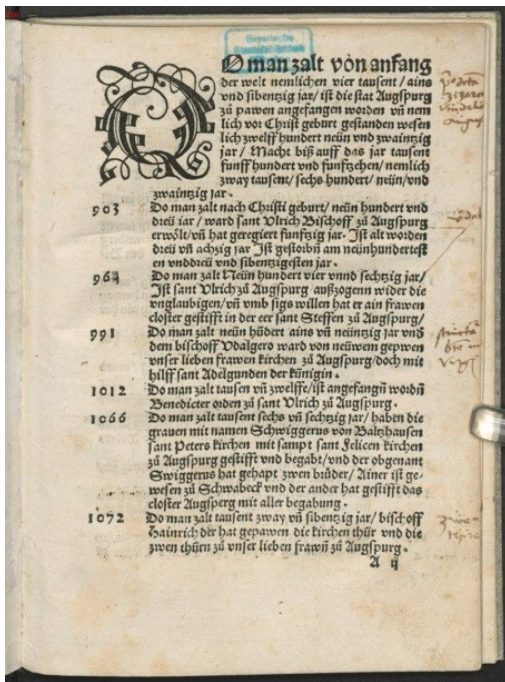 Bayerische
Staatsbibliothek
DO man zalt von anfang
der welt nemlichen vier tausent / ains
vnd sibentzig jar / ist die stat Augspurg
zů pawen angefangen worden vn̄ nem
lich vor Christi geburt gestanden wesen
lich zwelff hundert neün vnd zwaintzig
jar / Macht biß auff das jar tausent
funff hundert vnd funftzehen / nemlich
zway tausent / sechs hundert / neün / vnd
zwaintzig jar .
903 Do man zalt nach Christi geburt / neün hundert vnd
dreü iar / ward sant Vlrich Bischoff zů Augspurg
erwölt / vn̄ hat geregiert funftzig jar . Ist alt worden
dreü vn̄ achzig jar Ist gestorbn̄ am neünhundertest
en vnddreü vnd sibentzigesten jar .
964 Do man zalt Neün hundert vier vnnd sechtzig jar /
Ist sant Vlrich zů Augspurg außzogenn wider die
vnglaubigen / vn̄ vmb sigs willen hat er ain frawen
closter gestifft in der eer sant Steffen zů Augspurg /
991 Do man zalt neün hūdert ains vn̄ neüntzig jar vnd
dem bischoff Vdalgero ward von neüwem gepwen
vnser lieben frawen kirchen zů Augspurg / doch mit
hilff sant Adelgunden der künigin .
1012 Do man zalt tausen vn̄ zwelffe / ist angefangn̄ wordn̄
Benedicter orden zů sant Vlrich zů Augspurg .
1066 Do man zalt tausent sechs vn̄ sechtzig jar / haben die
grauen mit namen Schwiggerus von Baltzhausen
sant Peters kirchen mit sampt sant Felicen kirchen
zů Augspurg gestifft vnd begabt / vnd der obgenant
Swiggerus hat gehapt zwen brüder / Ainer ist ge-
wesen zů Schwabeck vnd der ander hat gestifft das
closter Augsperg mit aller begabung .
1072 Do man zalt tausent zway vn̄ sibentzig jar / bischoff
Hainrich der hat gepawen die kirchen thür vnd die
zwen thürn zů vnser lieben frawn̄ zů Augspurg .
A ij